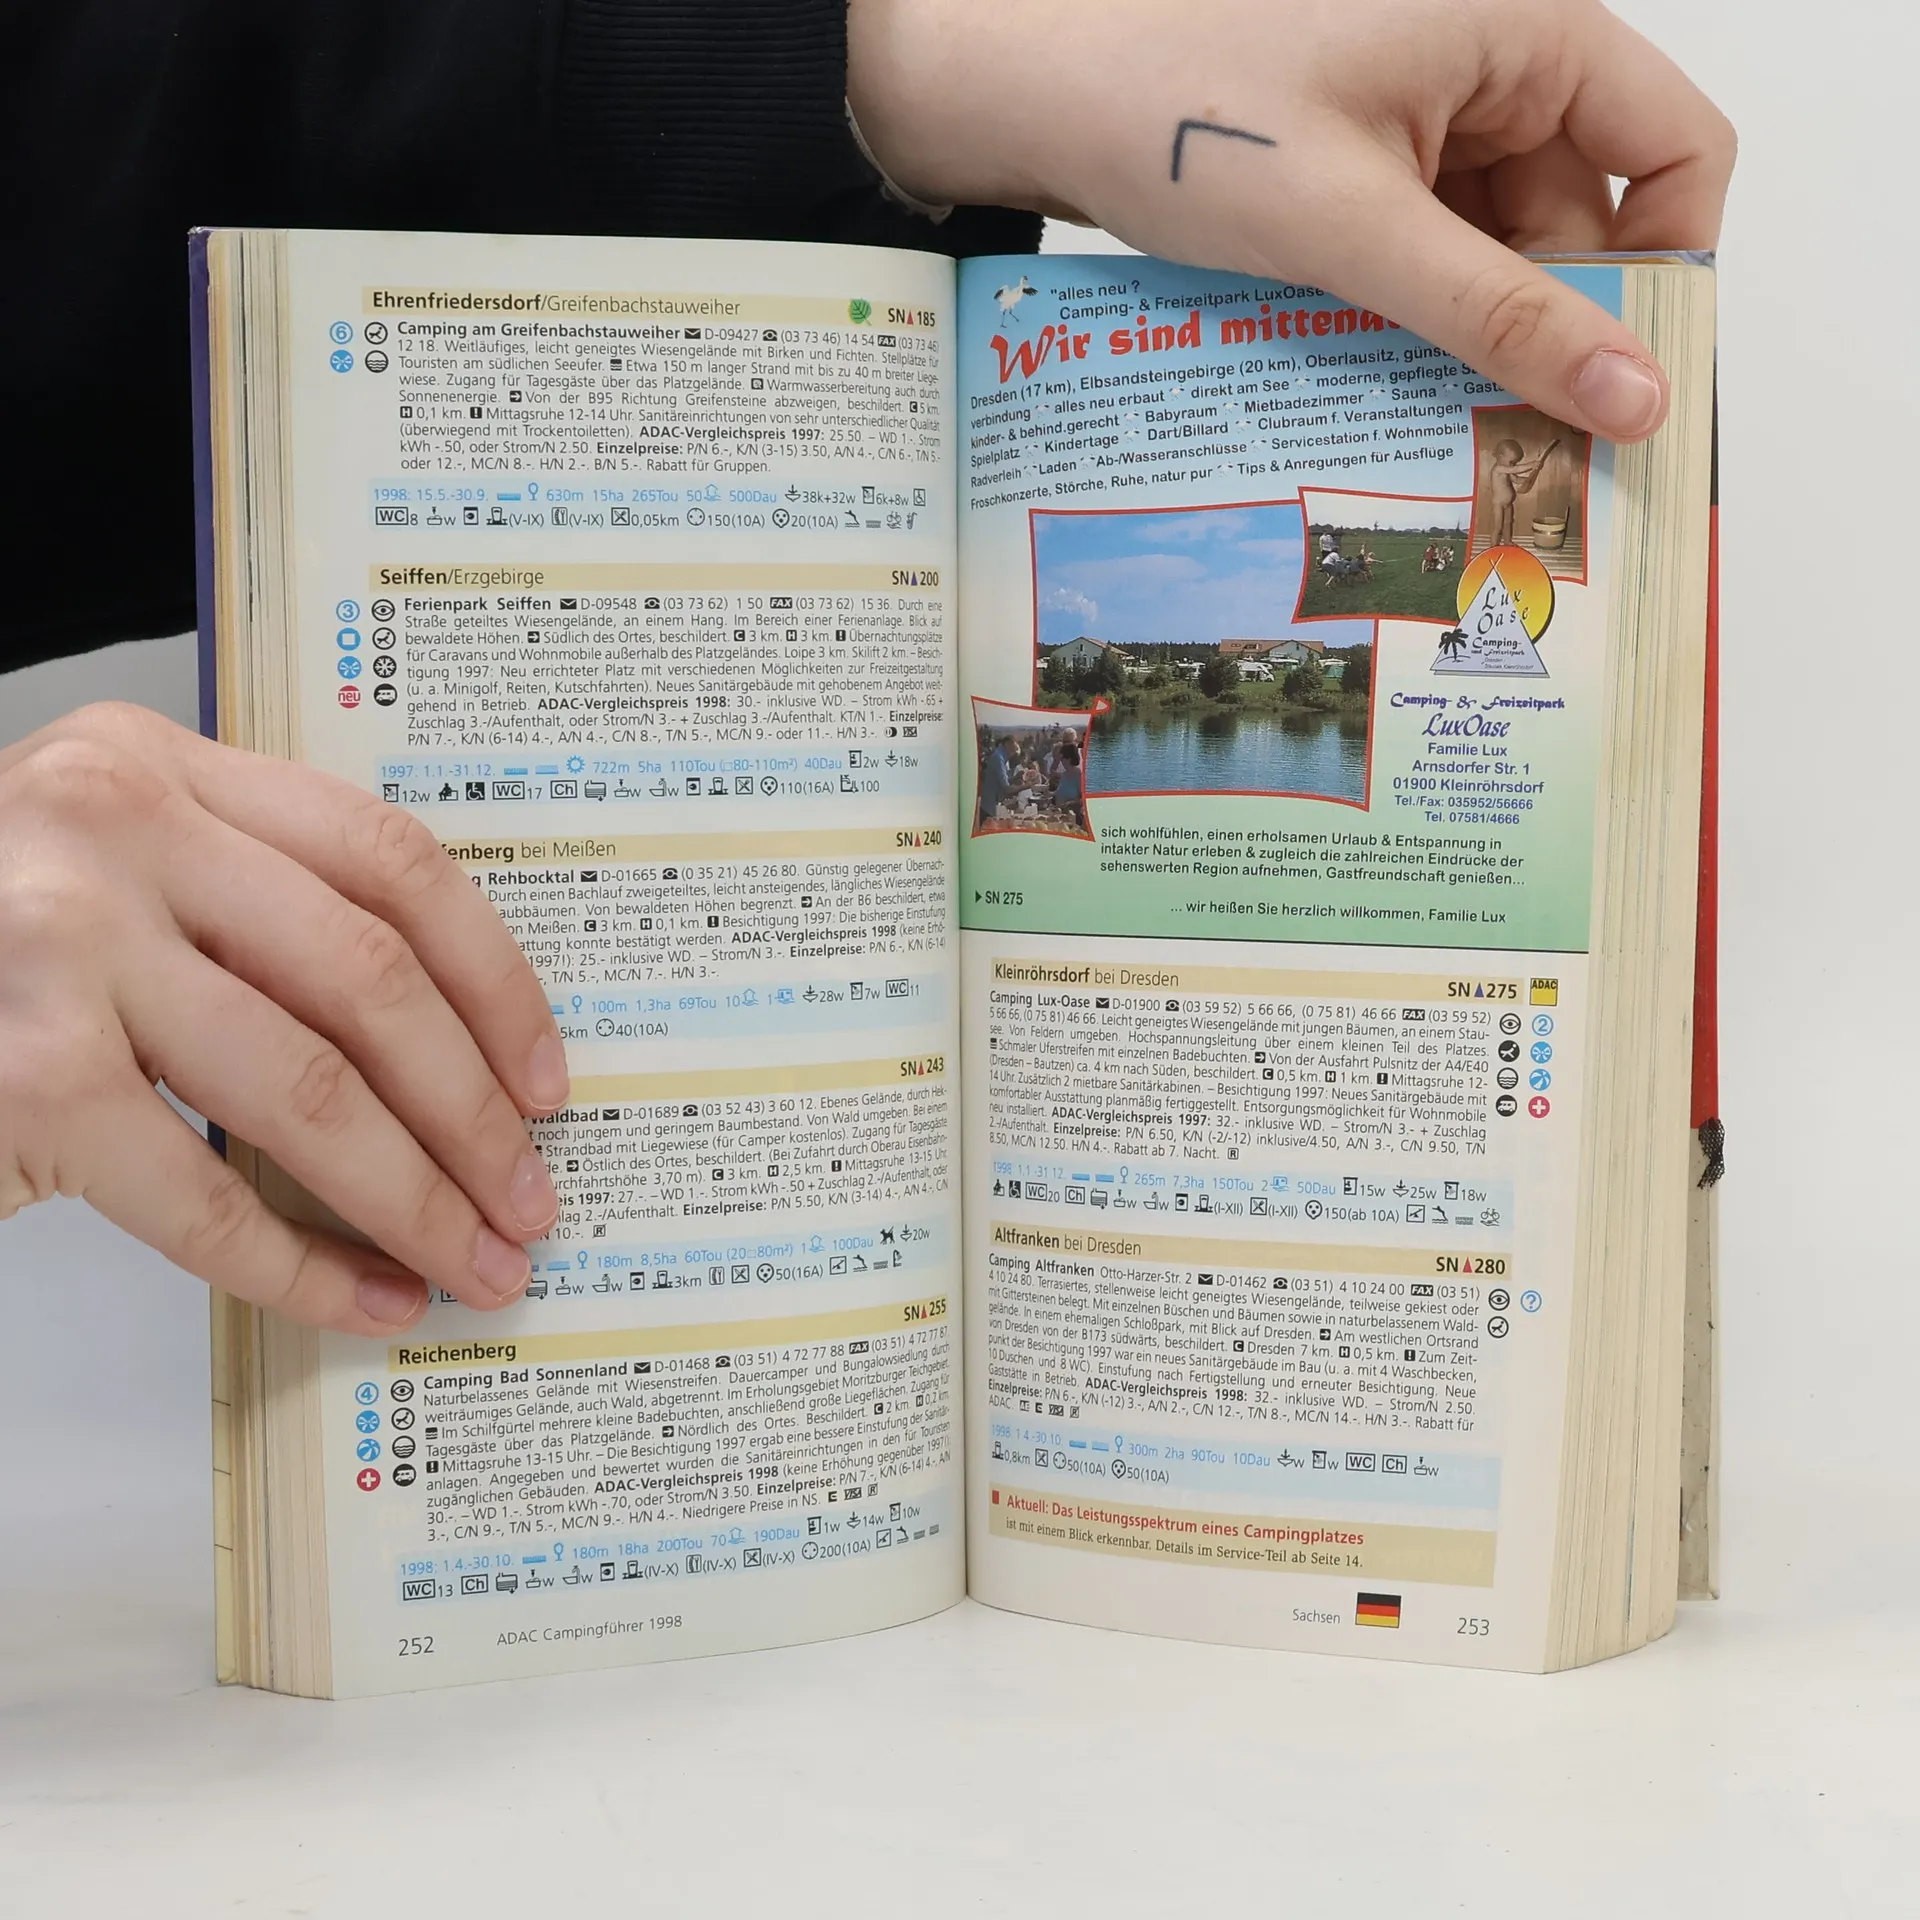 Ehrenfriedersdorf/Greifenbachstauweiher SN 185
Camping am Greifenbachstauweiher D-09427 (03 73 46) 14 54 FAX (03 73 46)
12 18. Weitläufiges, leicht geneigtes Wiesengelände mit Birken und Fichten. Stellplätze für
Touristen am südlichen Seeufer. Etwa 150 m langer Strand mit bis zu 40 m breiter Liege-
wiese. Zugang für Tagesgäste über das Platzgelände. Warmwasserbereitung auch durch
Sonnenenergie. Von der B95 Richtung Greifensteine abzweigen, beschildert. C 5 km.
H 0,1 km. Mittagsruhe 12-14 Uhr. Sanitäreinrichtungen von sehr unterschiedlicher Qualität
(überwiegend mit Trockentoiletten). ADAC-Vergleichspreis 1997: 25.50. – WD 1.-. Strom
kWh -.50, oder Strom/N 2.50. Einzelpreise: P/N 6.-, K/N (3-15) 3.50, A/N 4.-, C/N 6.-, T/N 5.-
oder 12.-, MC/N 8.-. H/N 2.-. B/N 5.-. Rabatt für Gruppen.
1998: 15.5.-30.9. 630m 15ha 265Tou 50 500Dau 38k+32w 6k+8w
WC 8 w (V-IX) (V-IX) 0,05km 150(10A) 20(10A)
Seiffen/Erzgebirge SN 200
Ferienpark Seiffen D-09548 (03 73 62) 1 50 FAX (03 73 62) 15 36. Durch eine
Straße geteiltes Wiesengelände, an einem Hang. Im Bereich einer Ferienanlage. Blick auf
bewaldete Höhen. Südlich des Ortes, beschildert. C 3 km. H 3 km. Übernachtungsplätze
für Caravans und Wohnmobile außerhalb des Platzgeländes. Loipe 3 km. Skilift 2 km. – Besich-
tigung 1997: Neu errichteter Platz mit verschiedenen Möglichkeiten zur Freizeitgestaltung
neu (u. a. Minigolf, Reiten, Kutschfahrten). Neues Sanitärgebäude mit gehobenem Angebot weit-
gehend in Betrieb. ADAC-Vergleichspreis 1998: 30.- inklusive WD. – Strom kWh -.65 +
Zuschlag 3.-/Aufenthalt, oder Strom/N 3.- + Zuschlag 3.-/Aufenthalt. KT/N 1.-. Einzelpreise:
P/N 7.-, K/N (6-14) 4.-, A/N 4.-, C/N 8.-, T/N 5.-, MC/N 9.- oder 11.-. H/N 3.-.
1997: 1.1.-31.12. 722m 5ha 110Tou (80-110m²) 40Dau 2w 18w
12w WC 17 Ch w w 110(16A) 100
enberg bei Meißen SN 240
Rehbocktal D-01665 (0 35 21) 45 26 80. Günstig gelegener Übernach-
Durch einen Bachlauf zweigeteiltes, leicht ansteigendes, längliches Wiesengelände
aubbäumen. Von bewaldeten Höhen begrenzt. An der B6 beschildert, etwa
on Meißen. C 3 km. H 0,1 km. Besichtigung 1997: Die bisherige Einstufung
attung konnte bestätigt werden. ADAC-Vergleichspreis 1998 (keine Erhö-
1997!): 25.- inklusive WD. – Strom/N 3.-. Einzelpreise: P/N 6.-, K/N (6-14)
, T/N 5.-, MC/N 7.-. H/N 3.-.
100m 1,3ha 69Tou 10 1 28w 7w WC 11
5km 40(10A)
SN 243
Waldbad D-01689 (03 52 43) 3 60 12. Ebenes Gelände, durch Hek-
noch jungem und geringem Baumbestand. Von Wald umgeben. Bei einem
Strandbad mit Liegewiese (für Camper kostenlos). Zugang für Tagesgäste
de. Östlich des Ortes, beschildert. (Bei Zufahrt durch Oberau Eisenbahn-
rchfahrtshöhe 3,70 m). C 3 km. H 2,5 km. Mittagsruhe 13-15 Uhr.
eis 1997: 27.-. – WD 1.-. Strom kWh -.50 + Zuschlag 2.-/Aufenthalt, oder
lag 2.-/Aufenthalt. Einzelpreise: P/N 5.50, K/N (3-14) 4.-, A/N 4.-, C/N
N 10.-. R
180m 8,5ha 60Tou (20 80m²) 1 100Dau 20w
w w 3km 50(16A)
Reichenberg SN 255
Camping Bad Sonnenland D-01468 (03 51) 4 72 77 88 FAX (03 51) 4 72 77 87.
Naturbelassenes Gelände mit Wiesenstreifen. Dauercamper und Bungalowsiedlung durch
weiträumiges Gelände, auch Wald, abgetrennt. Im Erholungsgebiet Moritzburger Teichgebiet.
Im Schilfgürtel mehrere kleine Badebuchten, anschließend große Liegeflächen. Zugang für
Tagesgäste über das Platzgelände. Nördlich des Ortes. Beschildert. C 2 km. H 0,2 km.
Mittagsruhe 13-15 Uhr. – Die Besichtigung 1997 ergab eine bessere Einstufung der Sanitär-
anlagen. Angegeben und bewertet wurden die Sanitäreinrichtungen in den für Touristen
zugänglichen Gebäuden. ADAC-Vergleichspreis 1998 (keine Erhöhung gegenüber 1997!):
30.-. – WD 1.-. Strom kWh -.70, oder Strom/N 3.50. Einzelpreise: P/N 7.-, K/N (6-14) 4.-, A/N
3.-, C/N 9.-, T/N 5.-, MC/N 9.-. H/N 4.-. Niedrigere Preise in NS. E VISA R
1998: 1.4.-30.10. 180m 18ha 200Tou 70 190Dau 1w 14w 10w
WC 13 Ch w w (IV-X) (IV-X) (IV-X) 200(10A)
252 ADAC Campingführer 1998
"alles neu ?
Camping- & Freizeitpark LuxOase
Wir sind mittend
Dresden (17 km), Elbsandsteingebirge (20 km), Oberlausitz, günst
verbindung alles neu erbaut direkt am See moderne, gepflegte
kinder- & behind.gerecht Babyraum Mietbadezimmer Sauna Gast
Spielplatz Kindertage Dart/Billard Clubraum f. Veranstaltungen
Radverleih Laden Ab-/Wasseranschlüsse Servicestation f. Wohnmobile
Froschkonzerte, Störche, Ruhe, natur pur Tips & Anregungen für Ausflüge
Lux
Oase
Camping-
und Freizeitpark
Camping- & Freizeitpark
LuxOase
Familie Lux
Arnsdorfer Str. 1
01900 Kleinröhrsdorf
Tel./Fax: 035952/56666
Tel. 07581/4666
sich wohlfühlen, einen erholsamen Urlaub & Entspannung in
intakter Natur erleben & zugleich die zahlreichen Eindrücke der
sehenswerten Region aufnehmen, Gastfreundschaft genießen...
SN 275
... wir heißen Sie herzlich willkommen, Familie Lux
Kleinröhrsdorf bei Dresden SN 275 ADAC
Camping Lux-Oase D-01900 (03 59 52) 5 66 66, (0 75 81) 46 66 FAX (03 59 52)
5 66 66, (0 75 81) 46 66. Leicht geneigtes Wiesengelände mit jungen Bäumen, an einem Stau-
see. Von Feldern umgeben. Hochspannungsleitung über einem kleinen Teil des Platzes.
Schmaler Uferstreifen mit einzelnen Badebuchten. Von der Ausfahrt Pulsnitz der A4/E40
(Dresden – Bautzen) ca. 4 km nach Süden, beschildert. C 0,5 km. H 1 km. Mittagsruhe 12-
14 Uhr. Zusätzlich 2 mietbare Sanitärkabinen. – Besichtigung 1997: Neues Sanitärgebäude mit
komfortabler Ausstattung planmäßig fertiggestellt. Entsorgungsmöglichkeit für Wohnmobile
neu installiert. ADAC-Vergleichspreis 1997: 32.- inklusive WD. – Strom/N 3.- + Zuschlag
2.-/Aufenthalt. Einzelpreise: P/N 6.50, K/N (-2/-12) inklusive/4.50, A/N 3.-, C/N 9.50, T/N
8.50, MC/N 12.50. H/N 4.-. Rabatt ab 7. Nacht. R
1998: 1.1.-31.12. 265m 7,3ha 150Tou 2 50Dau 15w 25w 18w
WC 20 Ch w w (I-XII) (I-XII) 150(ab 10A)
Altfranken bei Dresden SN 280
Camping Altfranken Otto-Harzer-Str. 2 D-01462 (03 51) 4 10 24 00 FAX (03 51)
4 10 24 80. Terrassiertes, stellenweise leicht geneigtes Wiesengelände, teilweise gekiest oder
mit Gittersteinen belegt. Mit einzelnen Büschen und Bäumen sowie in naturbelassenem Wald-
gelände. In einem ehemaligen Schloßpark, mit Blick auf Dresden. Am westlichen Ortsrand
von Dresden von der B173 südwärts, beschildert. C Dresden 7 km. H 0,5 km. Zum Zeit-
punkt der Besichtigung 1997 war ein neues Sanitärgebäude im Bau (u. a. mit 4 Waschbecken,
10 Duschen und 8 WC). Einstufung nach Fertigstellung und erneuter Besichtigung. Neue
Gaststätte in Betrieb. ADAC-Vergleichspreis 1998: 32.- inklusive WD. – Strom/N 2.50.
Einzelpreise: P/N 6.-, K/N (-12) 3.-, A/N 2.-, C/N 12.-, T/N 8.-, MC/N 14.-. H/N 3.-. Rabatt für
ADAC. AE E VISA R
1998: 1.4.-30.10. 300m 2ha 90Tou 10Dau w w WC Ch w
0,8km 50(10A) 50(10A)
Aktuell: Das Leistungsspektrum eines Campingplatzes
ist mit einem Blick erkennbar. Details im Service-Teil ab Seite 14.
Sachsen 253